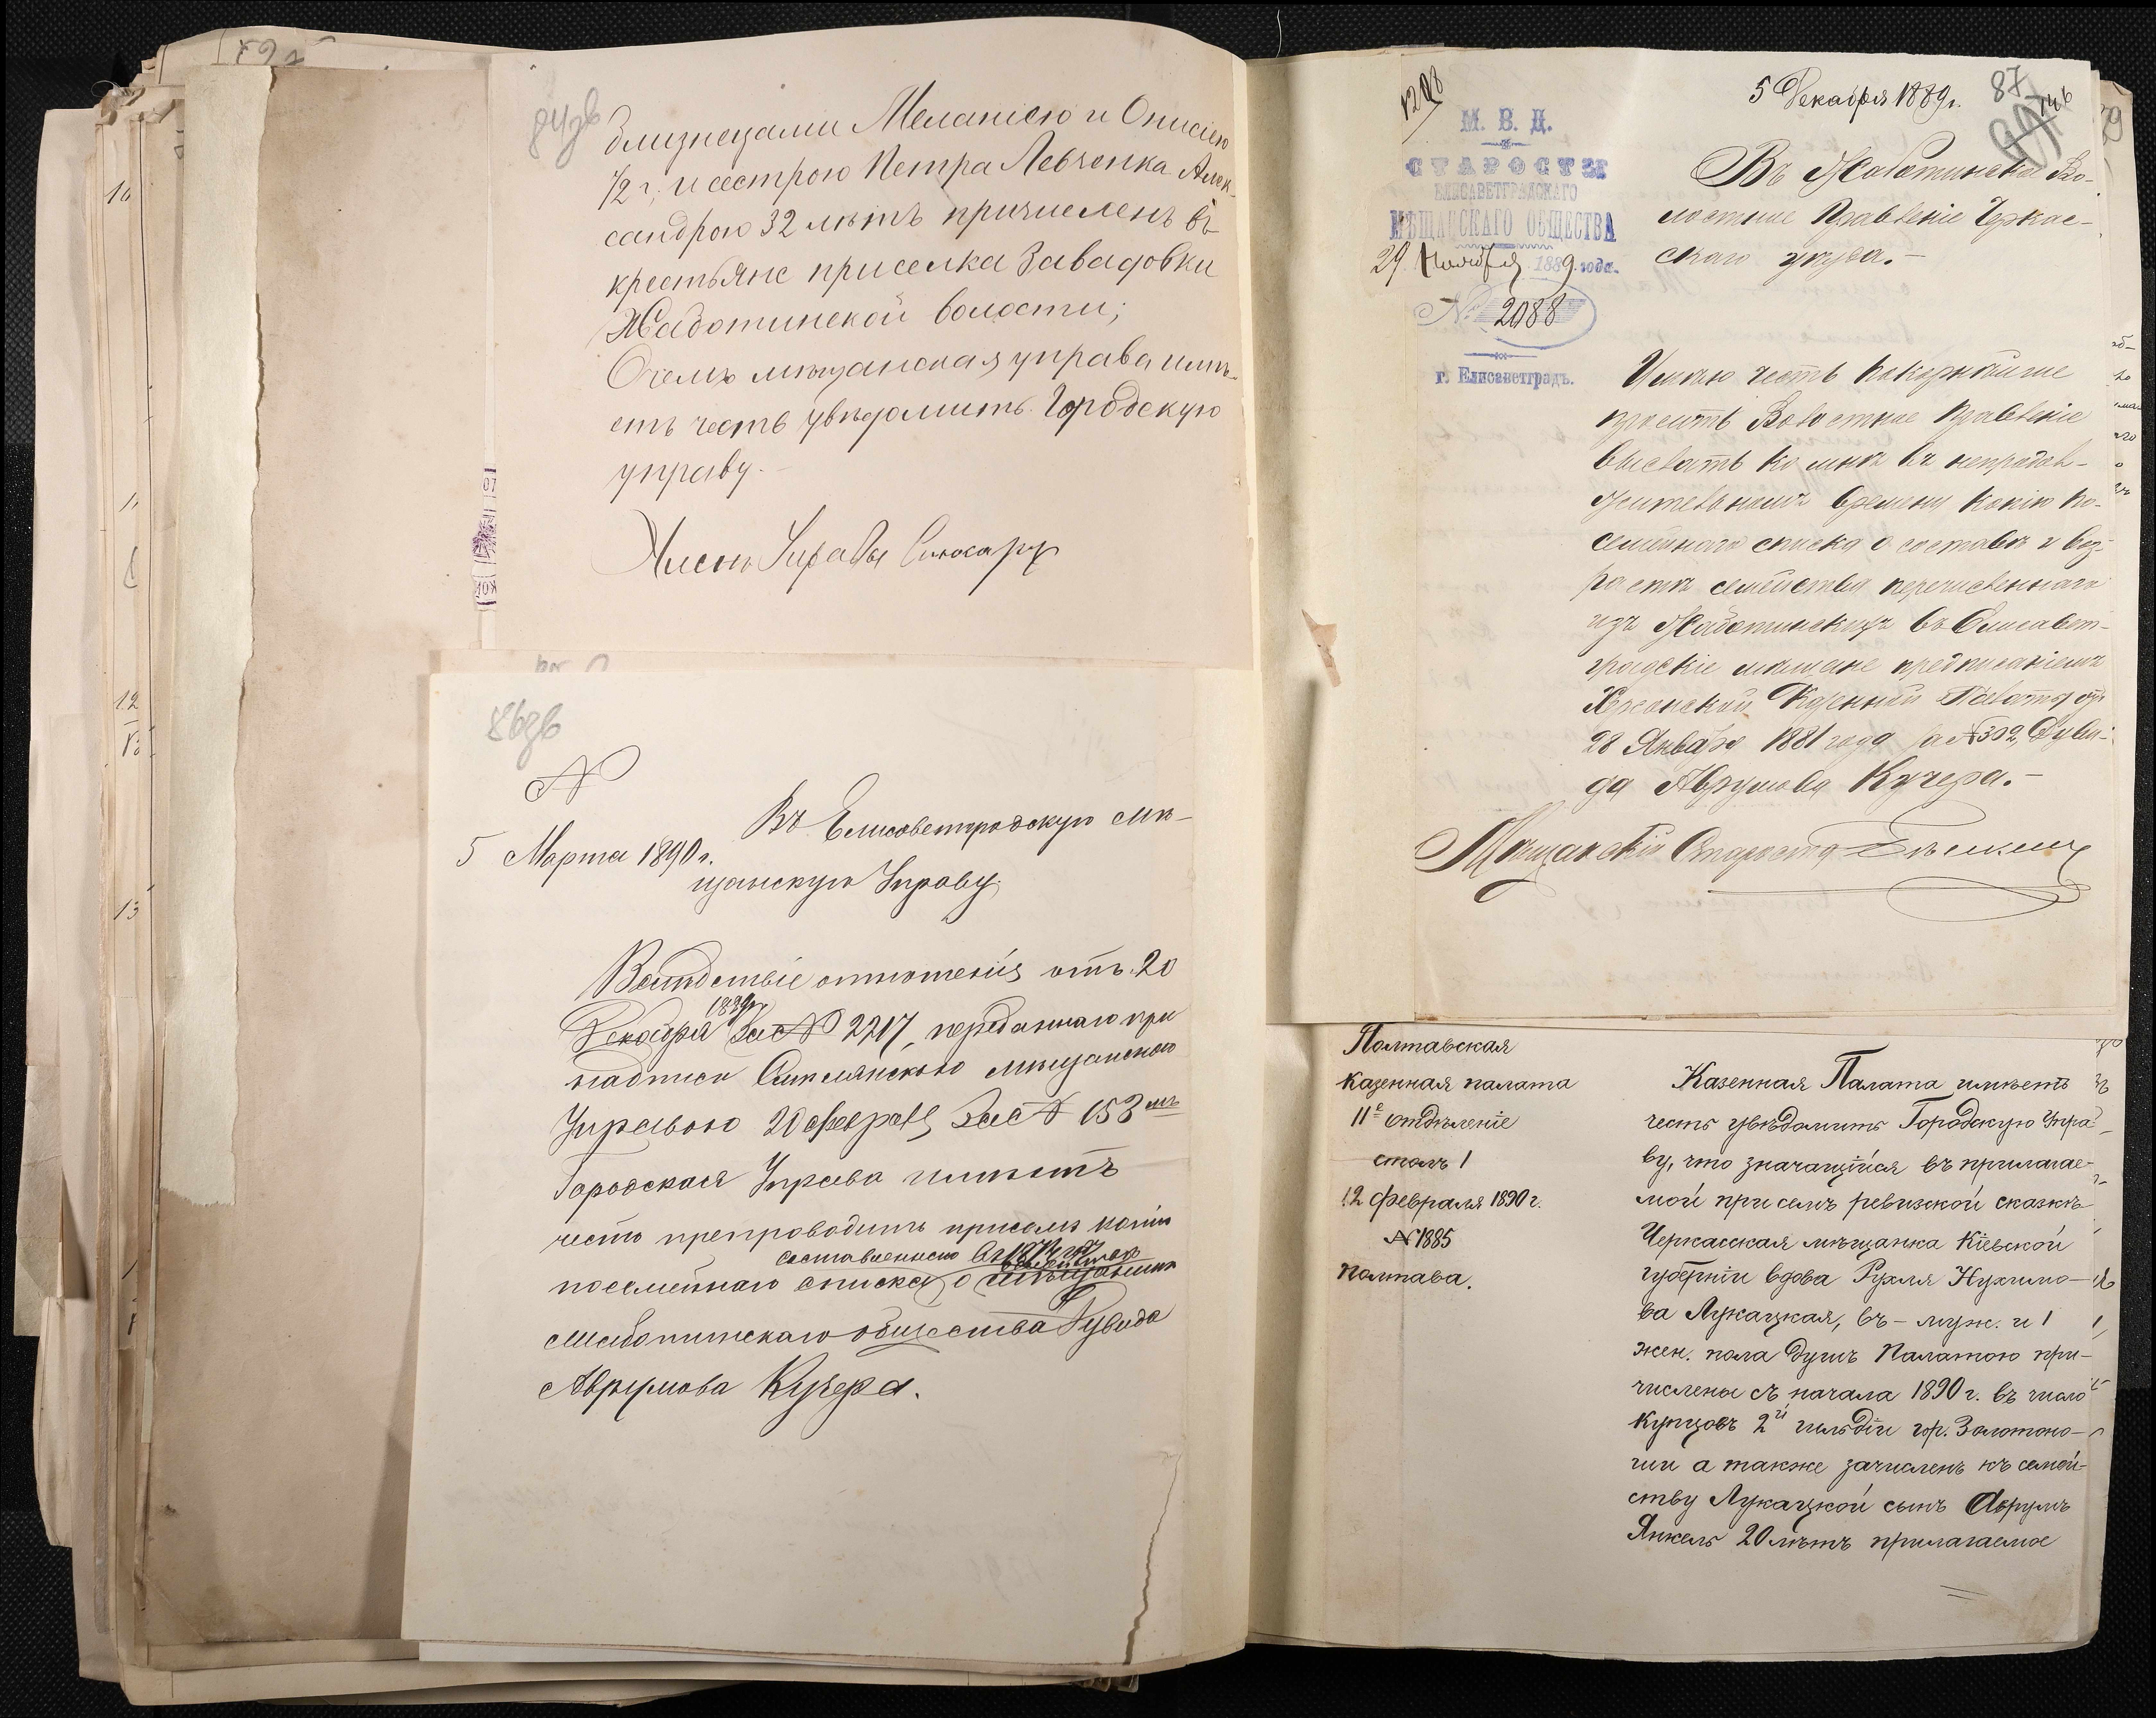 84зв
близнецами Меланіею и Онисіею
1/2 г., и сестрою Петра Левченка Алек-
сандрою 32 лѣтъ причисленъ въ
крестьяне приселка Завадовки
Жаботинской волости;
О чемъ мѣщанская управа имѣ-
етъ честь увѣдомить Городскую
управу.
Членъ Управы
86зв
№
5 Марта 1890 г.
Въ Елисаветградскую Мѣ-
щанскую Управу.
Вслѣдствіе отношенія отъ 20
Декабря 1889 г. за № 2217, переданнаго при
надписи Смѣлянскою мѣщанскою
Управою 20 февраля за № 153мъ
Городская Управа имѣетъ
честь препроводить при семъ копію
составленнаго въ 1874 году
посемейнаго списка о
Жаботинскаго общества Дувида
Аврумова Кучера.
5 Декабря 1889 г.
87
М. В. Д.
СТАРОСТЫ
ЕЛИСАВЕТГРАДСКАГО
МѢЩАНСКАГО ОБЩЕСТВА
29 Ноября 1889 года.
№ 2088
г. Елисаветградъ.
Въ Жаботинское Во-
лостное Правленіе Черкас-
скаго уѣзда.-
Имѣю честь покорнѣйше
просить Волостное Правленіе
выслать ко мнѣ въ непродол-
жительномъ времени копію по-
семейнаго списка о составѣ и воз-
растѣ семейства перечисленнаго
изъ Жаботинскихъ въ Елисавет-
градскіе мѣщане предписаніемъ
Херсонской Казенной Палаты отъ
28 Января 1881 года за № 302, Дуви-
да Аврумова Кучера.-
Мѣщанскій Староста
Полтавская
казенная палата
11е отдѣленіе
столъ 1
12 февраля 1890 г.
№ 1885
Полтава.
Казенная Палата имѣетъ
честь увѣдомить Городскую Упра-
ву, что значащійся въ прилагае-
мой при семъ ревизской сказкѣ
Черкасская мѣщанка Кіевской
губерніи вдова Рухля Нухимо-
ва Лукацкая, въ - муж. и 1
жен. пола душъ Палатою при-
числены съ начала 1890 г. въ число
купцовъ 2й гильдіи гор. Золотоно-
ши а также зачисленъ къ семей-
ству Лукацкой сынъ Аврумъ
Янкель 20 лѣтъ прилагаемое